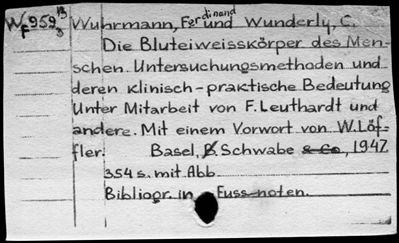 W 959 13 Wuhrmann, Ferdinand und Wunderly, C.
F 3 Die Bluteiweisskörper des Men-
schen. Untersuchungsmethoden und
deren klinisch-praktische Bedeutung
Unter Mitarbeit von F. Leuthardt und
andere. Mit einem Vorwort von W. Löf-
fler. Basel, B. Schwabe & Co, 1947
354 s. mit Abb
Bibliogr. in Fuss-noten.